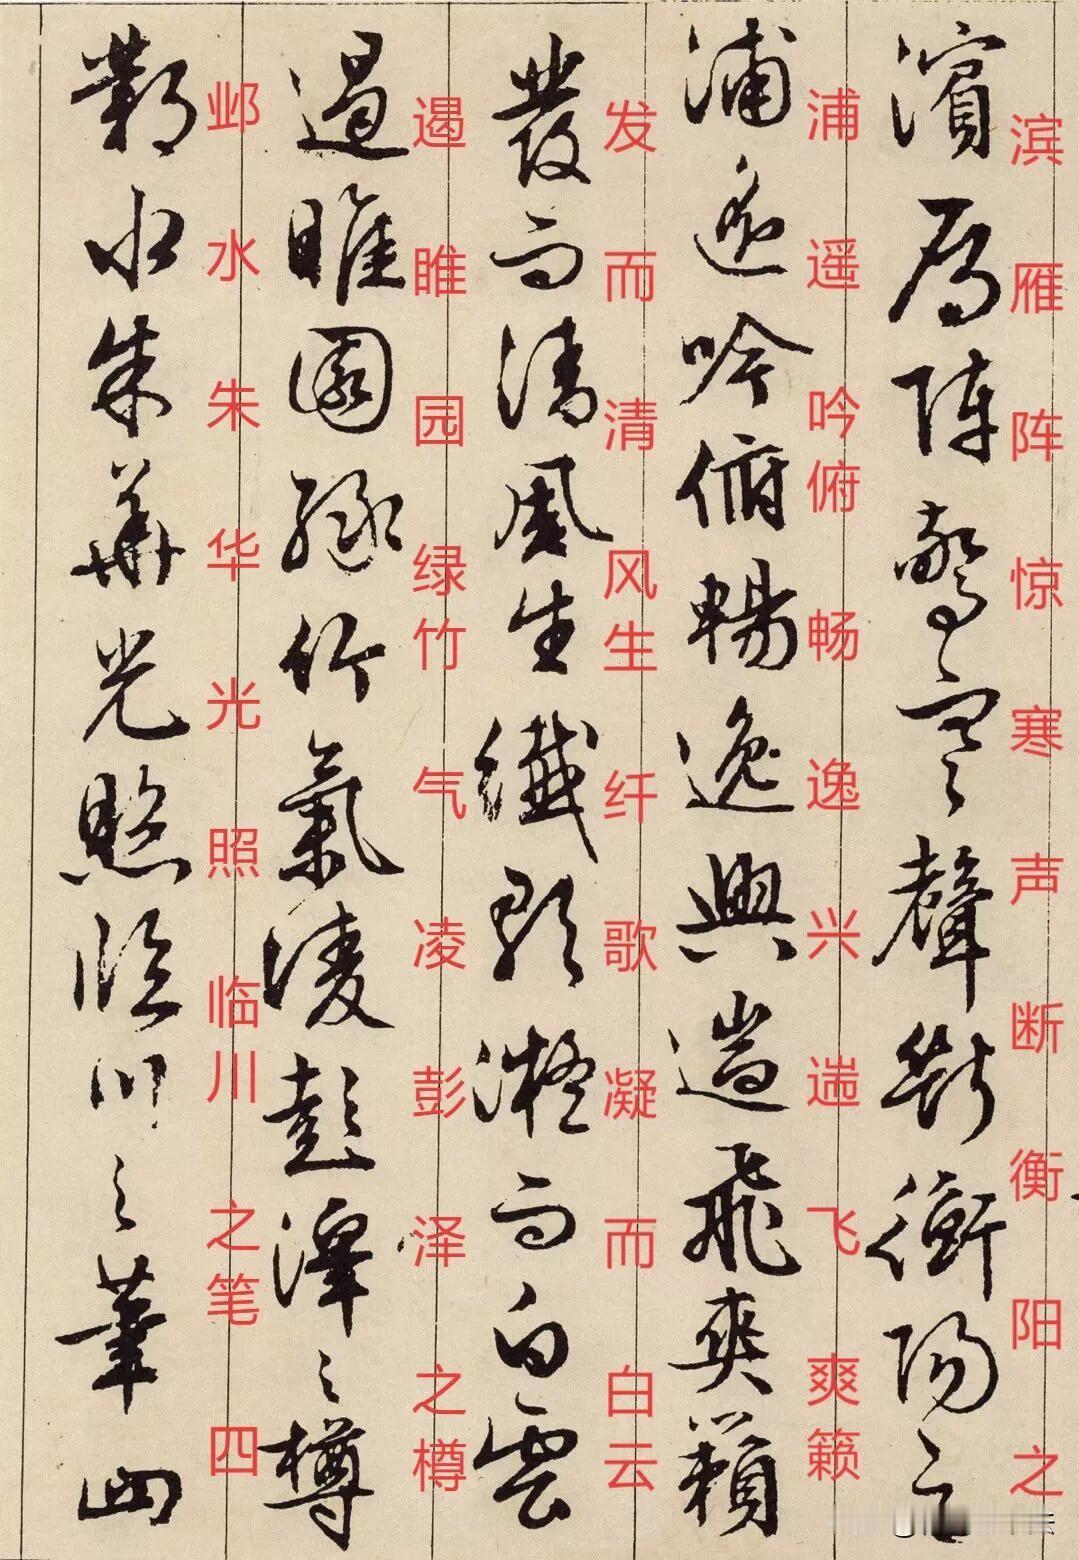 滨雁阵惊寒声断衡阳之
濱鴈陣驚寒聲斷衡陽之
浦遥吟俯畅逸兴遄飞爽籁
浦遥吟俯暢逸興遄飛爽籟
发而清风生纤歌凝而白云
發而清風生纖歌凝而白雲
遏睢园绿竹气凌彭泽之樽
遏睢園緑竹氣凌彭澤之樽
邺水朱华光照临川之笔四
鄴水朱華光照臨川之筆四